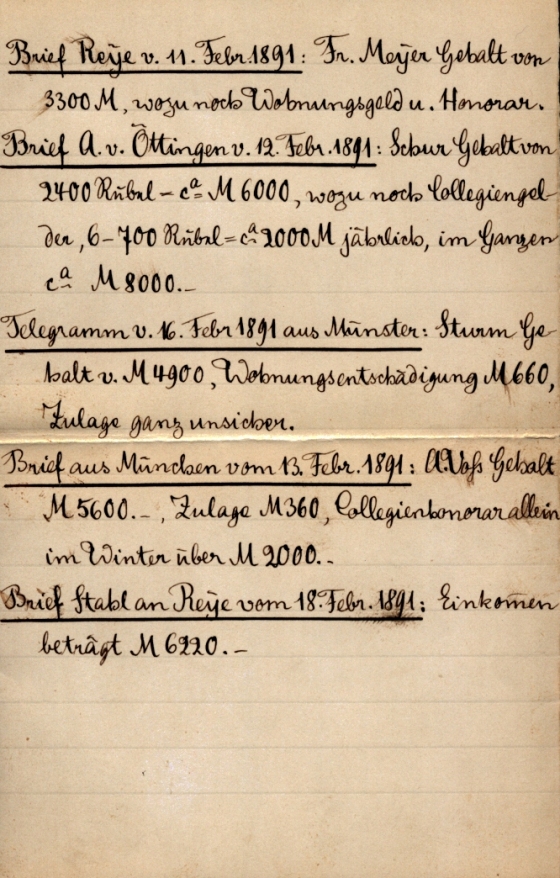 Brief Reÿe v. 11. Febr. 1891: Fr. Meÿer Gehalt von
3300 M, wozu noch Wohnungsgeld u. Honorar.
Brief A. v. Öttingen v. 12. Febr. 1891: Schur Gehalt von
2400 Rubel – ca M 6000, wozu noch Collegiengel-
der, 6–700 Rubel = ca 2000 M jährlich, im Ganzen
ca M 8000.–
Telegramm v. 16. Febr 1891 aus Münster: Sturm Ge-
halt v. M 4900, Wohnungsentschädigung M 660,
Zulage ganz unsicher.
Brief aus München vom 13. Febr. 1891: A. Voß Gehalt
M 5600.–, Zulage M 360, Collegienhonorar allein
im Winter über M 2000.–
Brief Stahl an Reÿe vom 18. Febr. 1891: Einkom̄en
beträgt M 6220.–